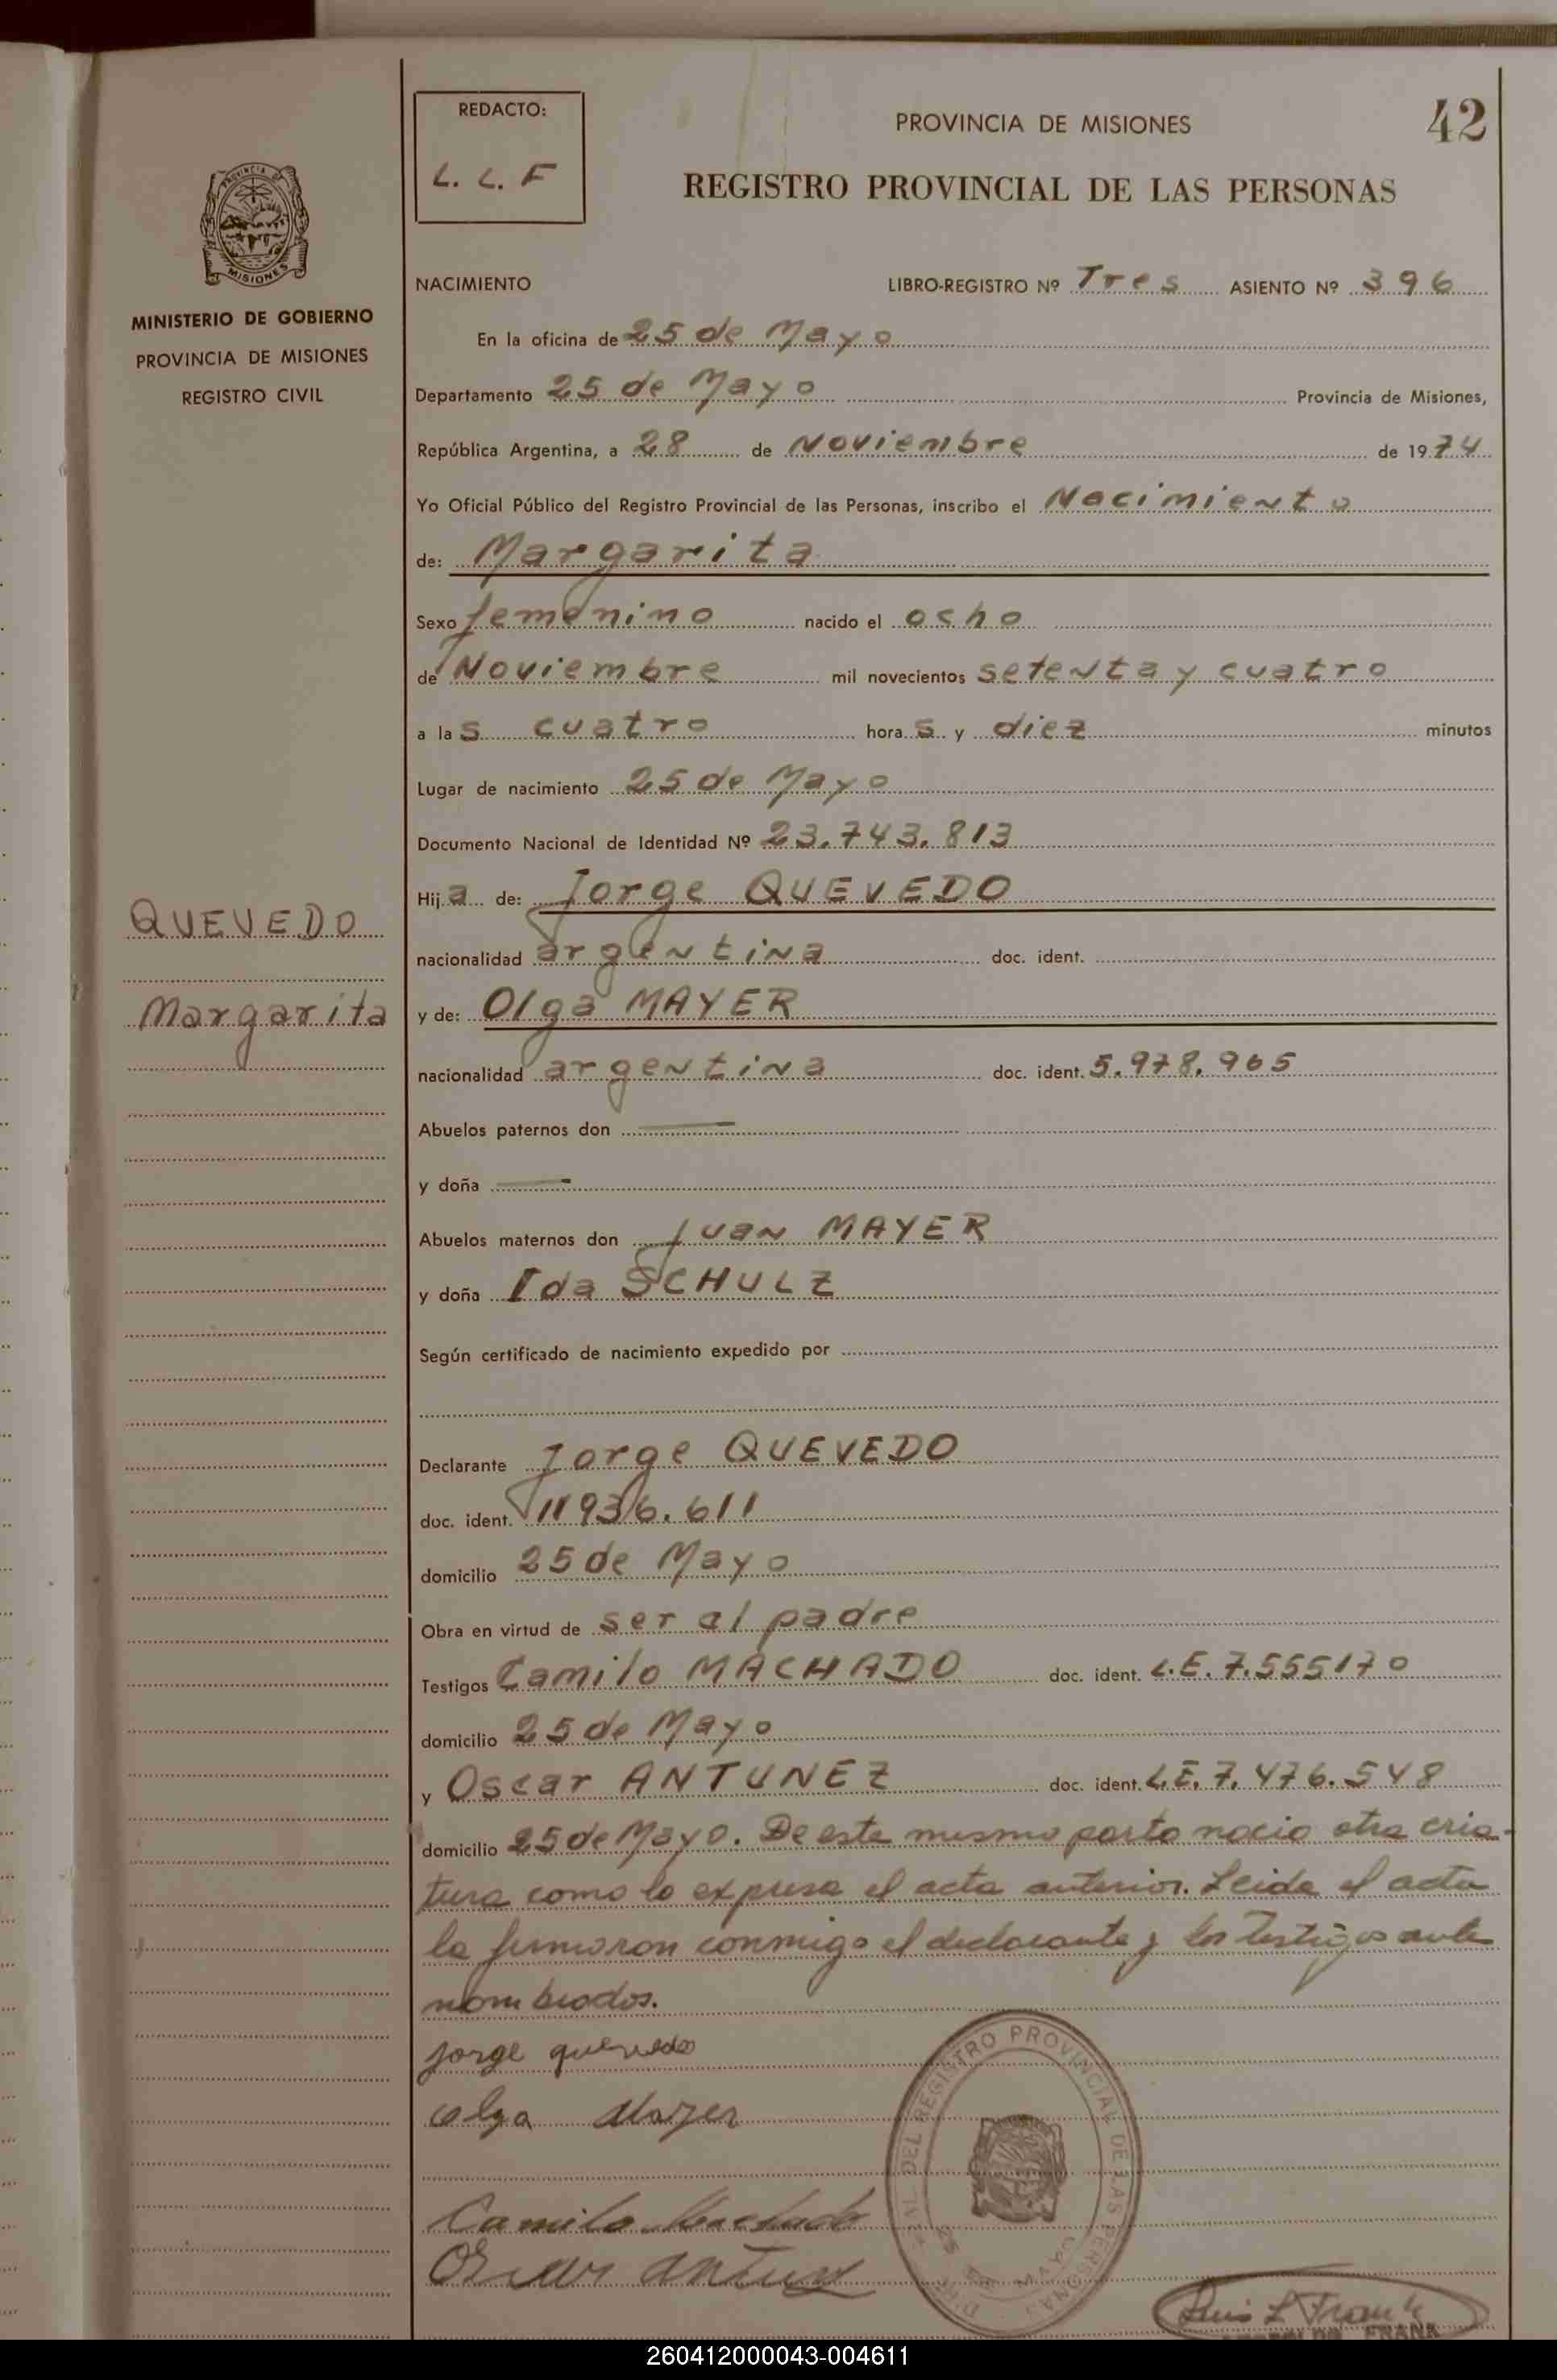 42
REDACTO:
L. L. F
PROVINCIA DE MISIONES
REGISTRO PROVINCIAL DE LAS PERSONAS
MISIONES
MINISTERIO DE GOBIERNO
PROVINCIA DE MISIONES
REGISTRO CIVIL
QUEVEDO
Margarita
NACIMIENTO LIBRO-REGISTRO Nº Tres ASIENTO Nº 396
En la oficina de 25 de Mayo
Departamento 25 de Mayo Provincia de Misiones,
República Argentina, a 28 de Noviembre de 1974
Yo Oficial Público del Registro Provincial de las Personas, inscribo el Nacimiento
de: Margarita
Sexo femenino nacido el ocho
de Noviembre mil novecientos setenta y cuatro
a las cuatro horas y diez minutos
Lugar de nacimiento 25 de Mayo
Documento Nacional de Identidad Nº 23.743.813
Hija de: Jorge QUEVEDO
nacionalidad argentina doc. ident.
y de: Olga MAYER
nacionalidad argentina doc. ident. 5.978.965
Abuelos paternos don —
y doña —
Abuelos maternos don Juan MAYER
y doña Ida SCHULZ
Según certificado de nacimiento expedido por
Declarante Jorge QUEVEDO
doc. ident. 11936.611
domicilio 25 de Mayo
Obra en virtud de ser al padre
Testigos Camilo MACHADO doc. ident. L.E. 7.555170
domicilio 25 de Mayo
y Oscar ANTUNEZ doc. ident. L.E. 7.476.548
domicilio 25 de Mayo. De este mismo parto nacio otra cria-
tura como lo expresa el acta anterior. Leida el acta
la firmaron conmigo el declarante y los testigos ante
nombrados.
Jorge quevedo
olga Mayer
Camilo Machado
Oscar Antunez
DEL REGISTRO PROVINCIAL DE LAS PERSONAS
25 DE MAYO
Luis L Frank
FRANK
260412000043-004611